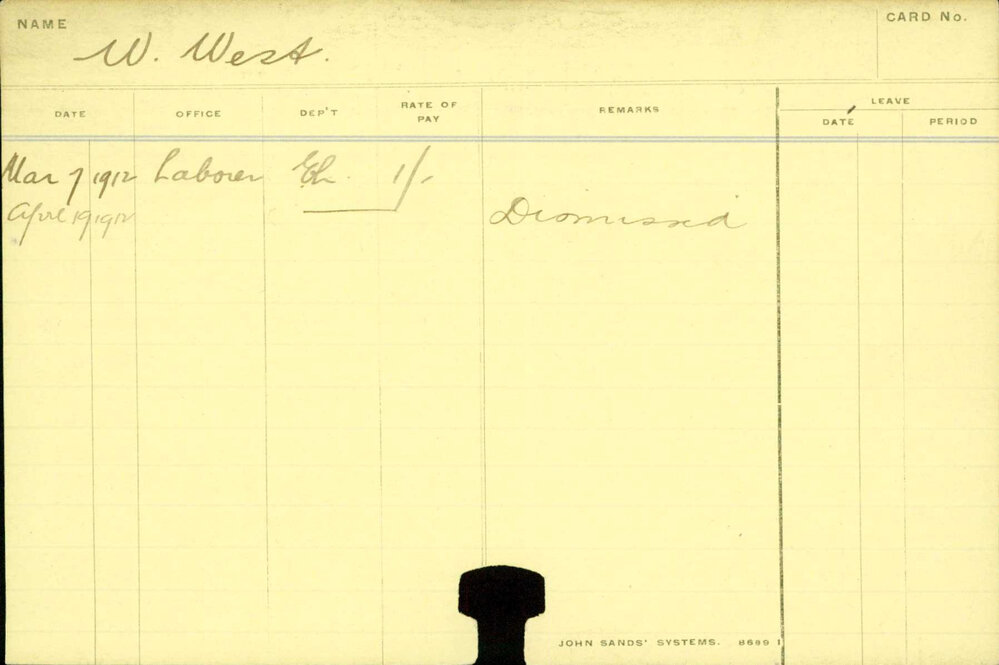 NAME
W. West.
CARD No.
DATE
OFFICE
DEP'T
RATE OF PAY
REMARKS
LEAVE
DATE
PERIOD
Mar 7 1912 Laborer 1/-
April 19 1912 Dismissed
JOHN SANDS' SYSTEMS.